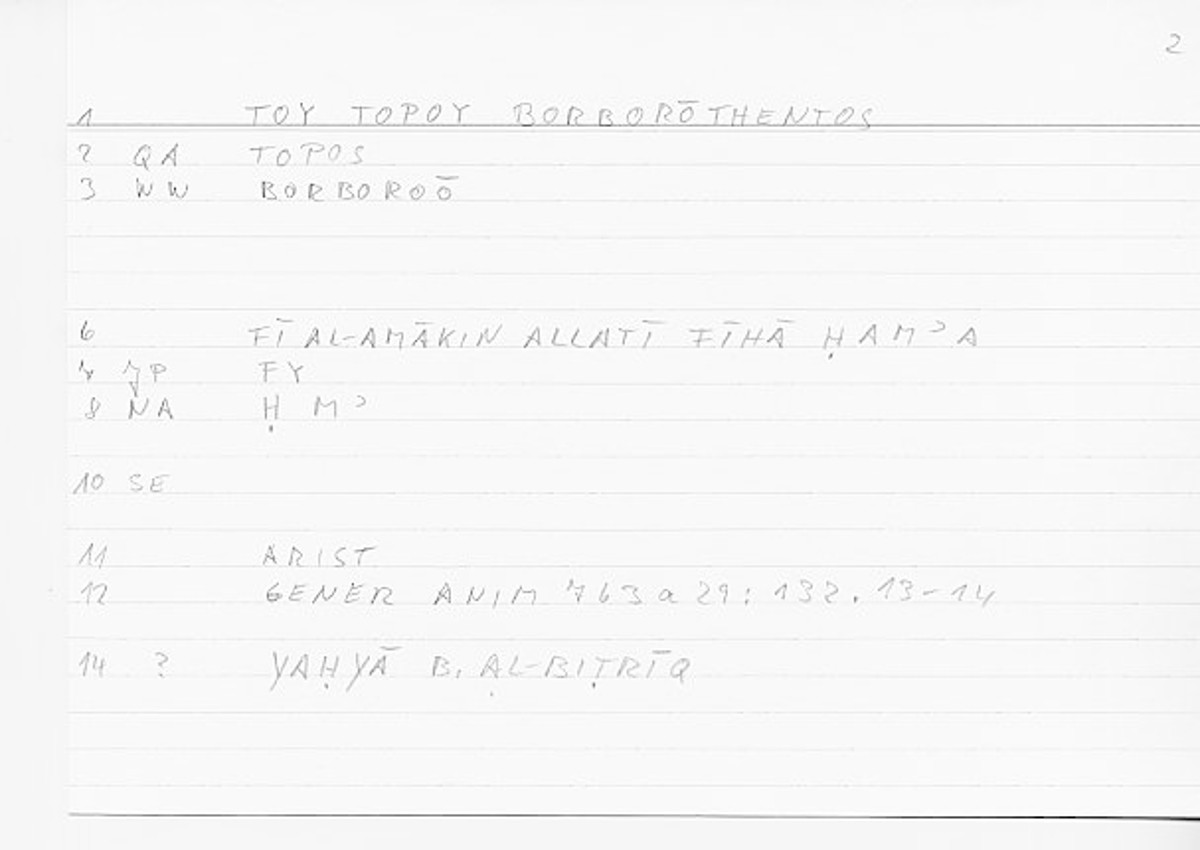 2
1 TOY TOPOY BORBORŌTHENTOS
2 QA TOPOS
3 WW BORBOROŌ
6 FĪ AL-AMĀKIN ALLATĪ FĪHĀ ḤAMʾA
7 JP FY
8 NA ḤMʾ
10 SE
11 ARIST
12 GENER ANIM 763a29; 132.13-14
14 ? YAḤYĀ B. AL-BIṬRĪQ